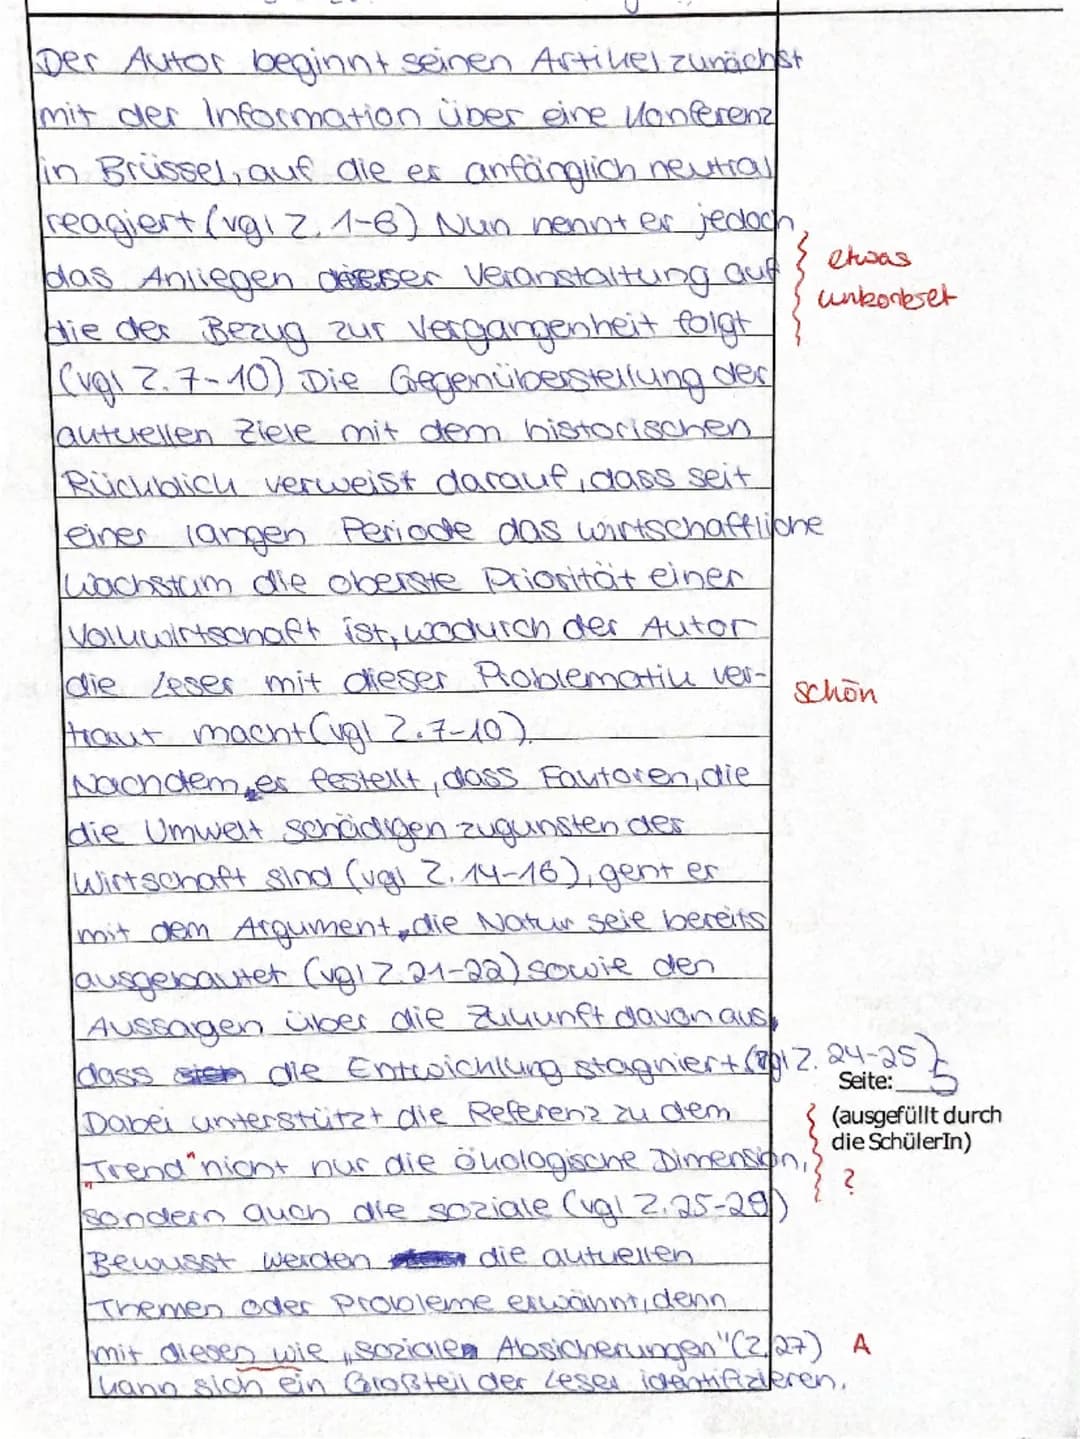 Der Autor beginnt seinen Artikel zunächst
mit der Information über eine Konferenz
in Brüssel, auf die er anfänglich neutral
reagiert (vgl Z. 1-6) Nun nennt er jedoch,
das Anliegen dieser Veranstaltung auf
etwas
unkonkret
die der Bezug zur Vergangenheit folgt
(vgl Z. 7-10) Die Gegenüberstellung der
aktuellen Ziele mit dem historischen
Rückblick verweist darauf, dass seit
einer langen Periode das wirtschaftliche
Wachstum die oberste Priorität einer
Volkwirtschaft ist, wodurch der Autor
die Leser mit dieser Problematik ver-
schön
traut macht (vgl Z. 7-10).
Nachdem er festellt, dass Faktoren, die
die Umwelt schädigen zugunsten der
Wirtschaft sind (vgl Z. 14-16), geht er
mit dem Argument, die Natur seie bereits
ausgebautet (vgl Z. 21-22) sowie den
Aussagen über die Zukunft davon aus,
dass die Entwicklung stagniert (vgl Z. 24-25)
Seite: 5
(ausgefüllt durch
die SchülerIn)
Dabei unterstützt die Referenz zu dem
„Trend" nicht nur die ökologische Dimension,
?
sondern auch die soziale (vgl Z. 25-29)
Bewusst werden die aktuellen
Themen oder Probleme erwähnt, denn
mit diesen wie „sozialen Absicherungen" (Z. 27) A
kann sich ein Großteil der Leser identifizieren.